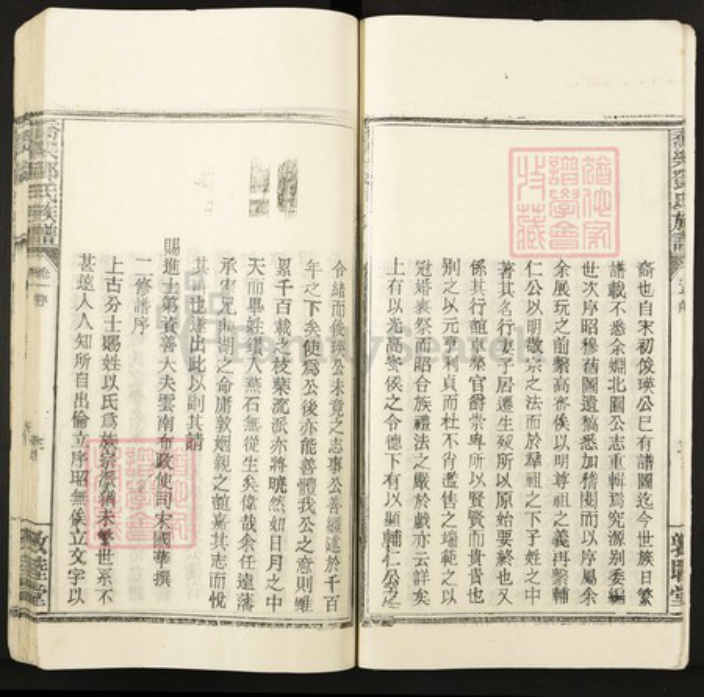 裔也自宋初俊瑛公已有譜圖迄今世族日繁
譜載不悉余淵北園公志重輯焉究源別委編
世次序昭穆舊圖遺稿悉加稽閱而以序屬余
余展玩之前繫高密侯以明尊祖之義再繫輔
仁公以明敬宗之法而於羣祖之下子姓之中
著其名行妻子居遷生歿所以原始要終也又
係其行誼卓犖官爵崇卑所以賢賢而貴貴也
別之以元亨利貞而杜不肖濫售之端範之以
冠婚喪祭而昭合族禮法之嚴於戲亦云詳矣
上有以光高密侯之令德下有以顯輔仁公之
令緒而俊瑛公未竟之志事公善繼述於千百
年之下矣使為公後亦能善體我公之意則雖
累千百載之枝葉流派亦將曉然如日月之中
天而畢姓讚人燕石無從生矣偉哉余任遠藩
承宋兄典湖之命庸敦姻親之誼嘉其志而悅
其請也遂出此以副其請
賜進士第資善大夫雲南布政使司宋國華撰
二修譜序
上古分士賜姓以氏為族宗派猶未繁世系不
甚遠人人知所自出倫立序昭無俟立文字以
鄧氏族譜
卷一序
敦睦堂